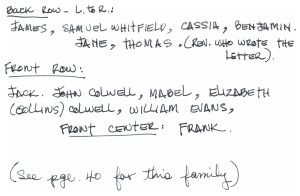 BACK ROW - L. to R.:
JAMES, SAMUEL WHITFIELD, CASSIA, BENJAMIN.
JANE, THOMAS. (REV. WHO WROTE THE
LETTER).
FRONT ROW:
JACK. JOHN COLWELL, MABEL, ELIZABETH
(COLLINS) COLWELL, WILLIAM EVANS,
FRONT CENTER: FRANK.
(See pge. 40 for this family)